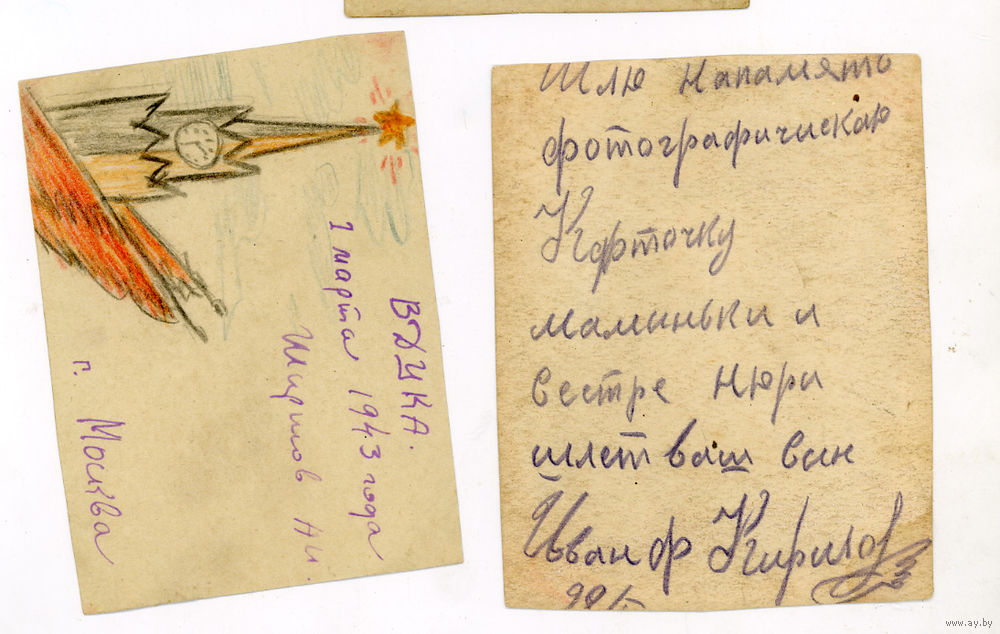 ВДЦКА.
1 марта 1943 года
Ширшов Н И.
г. Москва
Шлю напамять
фотографичискаю
Карточку
маминьки и
сестре Нюри
шлет ваш син
Иван ф Кирилов
www.ay.by